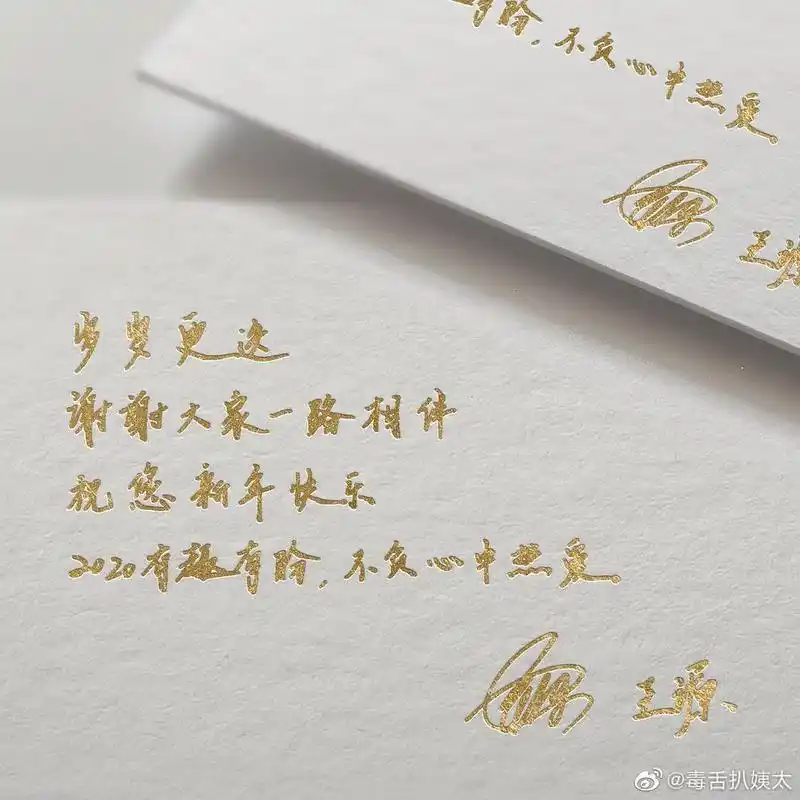 有盼,不负心中热爱。
王源
岁岁更迭
谢谢大家一路相伴
祝您新年快乐
2020有趣有盼,不负心中热爱。
王源
@毒舌扒姨太